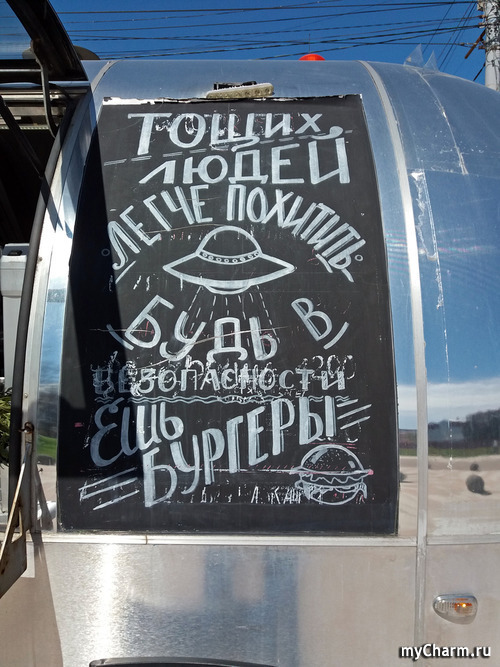 ТОЩИХ
ЛЮДЕЙ
ЛЕГЧЕ ПОХИТИТЬ
БУДЬ В
БЕЗОПАСНОСТИ
ЕШЬ
БУРГЕРЫ
myCharm.ru